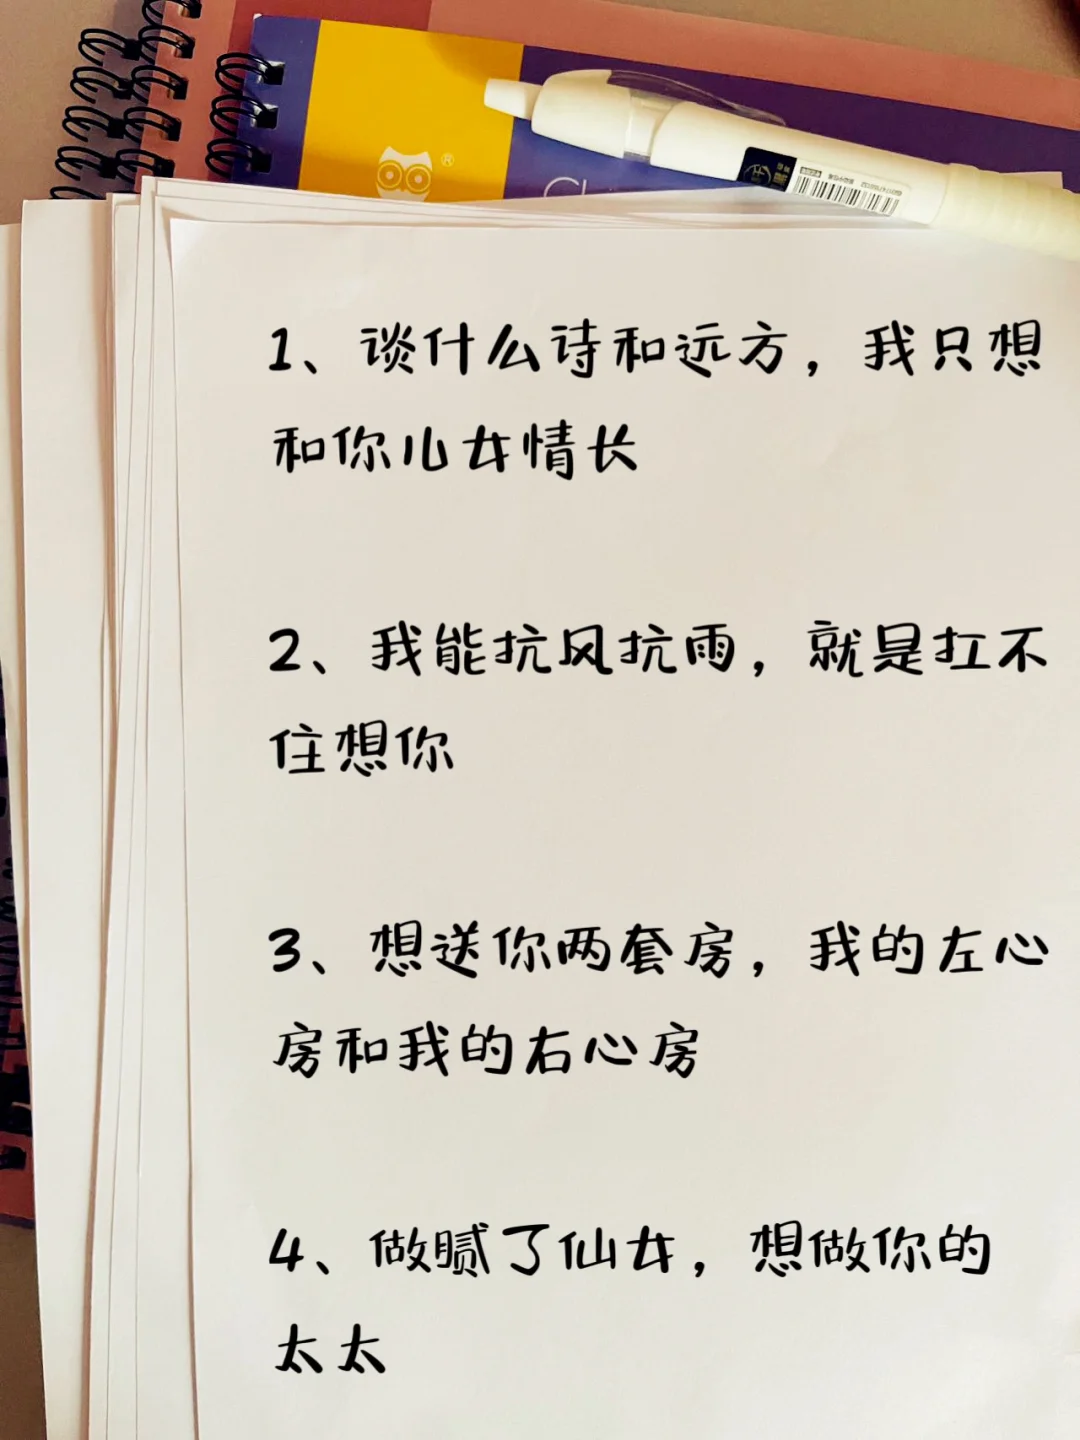 1、谈什么诗和远方，我只想
和你儿女情长
2、我能抗风抗雨，就是扛不
住想你
3、想送你两套房，我的左心
房和我的右心房
4、做腻了仙女，想做你的
太太